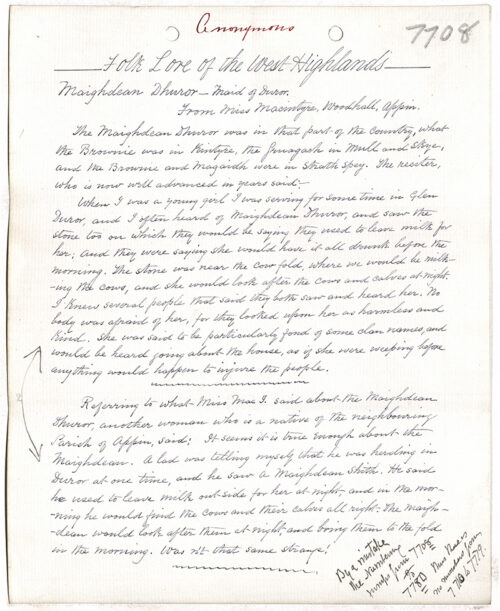 Anonymous
7708
Folk Lore of the West Highlands
Maighdean Dhuror – Maid of Duror.
From Miss Macintyre, Woodhall, Appin.
The Maighdean Dhuror was in that part of the country, what
the Brownie was in Kintyre, the Gruagach in Mull and Skye,
and the Brownie and Magaidh were in Strath Spey. The reciter,
who is now well advanced in years said:–
When I was a young girl I was serving for some time in Glen
Duror, and I often heard of Maighdean Dhuror, and saw the
stone too on which they would be saying they used to leave milk for
her; and they were saying she would have it all drunk before the
morning. The stone was near the cow fold, where we would be milk-
-ing the cows, and she would look after the cows and calves at night.
I knew several people that said they both saw and heard her. No
body was afraid of her, for they looked upon her as harmless and
kind. She was said to be particularly fond of some clan names, and
would be heard going about the house, as if she were weeping before
anything would happen to injure the people.
Referring to what Miss Mac I. said about the Maighdean
Dhuror, another woman who is a native of the neighbouring
Parish of Appin, said: It seems it is true enough about the
Maighdean. A lad was telling myself that he was herding in
Duror at one time, and he saw A Maighdean Shith. He said
he used to leave milk outside for her at night, and in the mor-
-ning he would find the cows and their calves all right. The Maigh-
dean would look after them at night and bring them to the fold
in the morning. Was n't that same strange!
By a mistake
the numbering
jumps from 7708
to
7780
no numbers from
7709 to 7779.